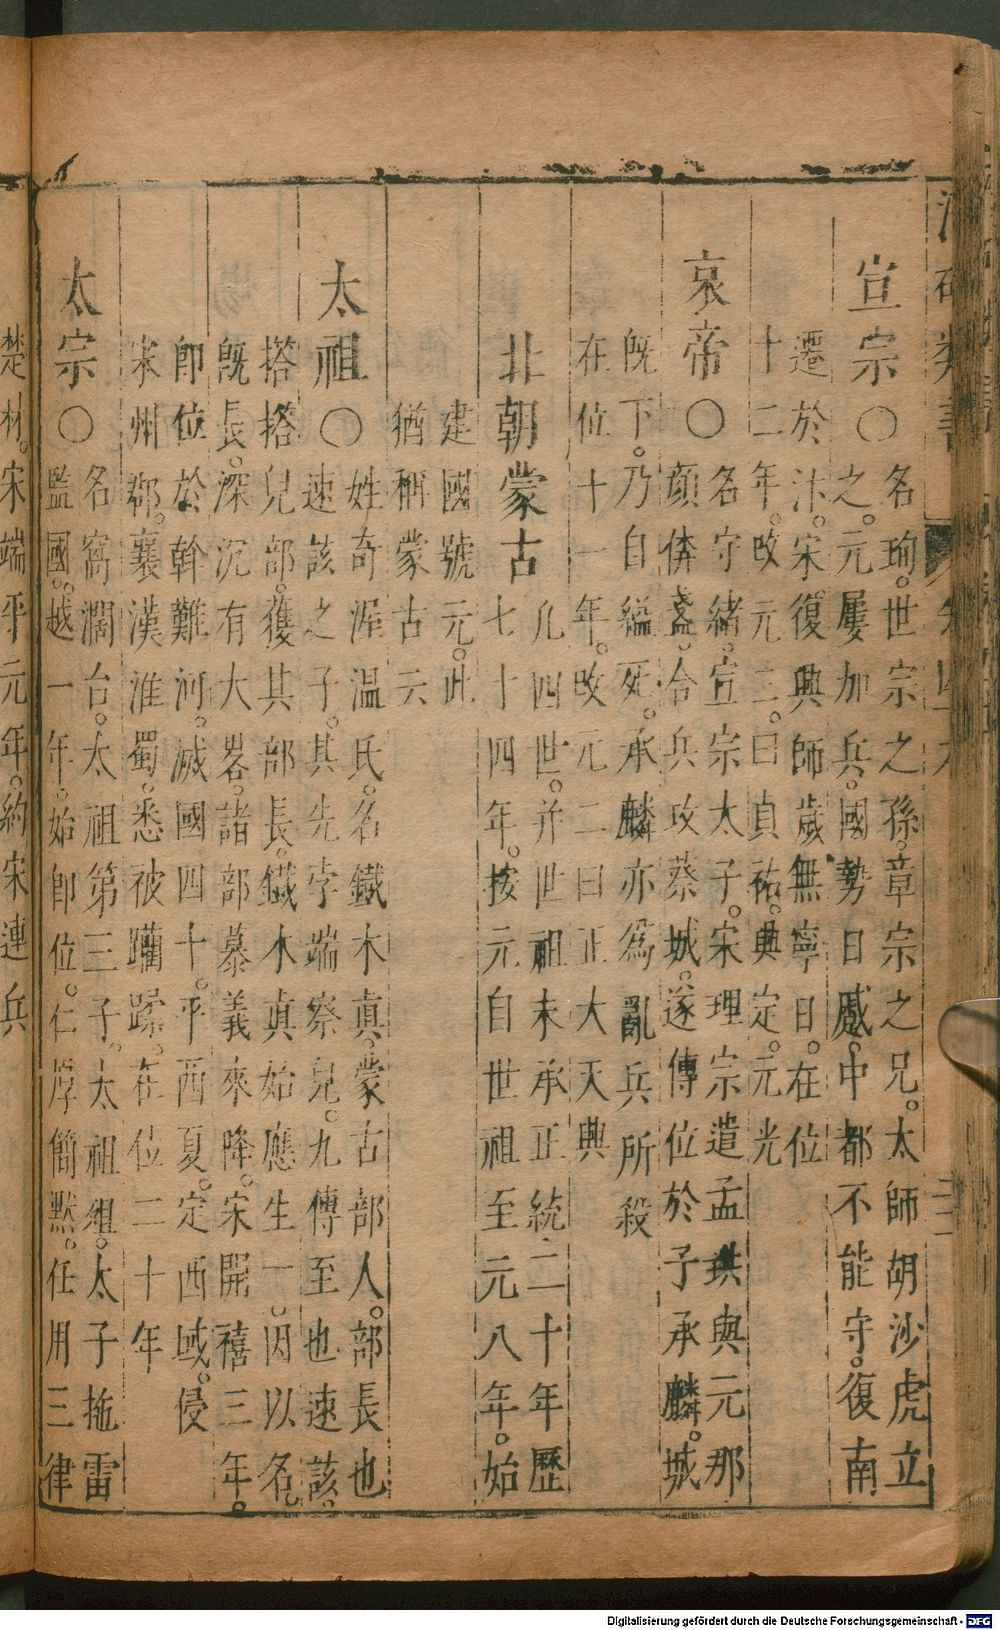 宣宗○名珣。世宗之孫。章宗之兄。太師胡沙虎立
之。元屢加兵。國勢日蹙。中都不能守。復南
遷於汴。宋復興師。歲無寧日。在位
十二年。改元三。曰貞祐。興定。元光
哀帝○名守緒。宣宗太子。宋理宗遣孟珙與元那
顔倴盞。合兵攻蔡城。遂傳位於子承麟。城
旣下。乃自縊死。承麟亦為亂兵所殺
在位十一年。改元二曰正大天興
北朝蒙古凡四世。并世祖未承正統二十年歷
七十四年。按元自世祖至元八年。始
建國號元。此
猶稱蒙古云
太祖○姓奇渥温氏。名鐵木真。蒙古部人。部長也
速該之子。其先孛端察兒。九傳至也速該。
搭搭兒部。獲其部長。鐵木真始應生一。因以名。
旣長。深沉有大畧。諸部慕義來降。宋開禧三年。
卽位於斡難河。滅國四十。平西夏。定西域。侵
宋州郡。襄漢淮蜀。悉被躪蹂。在位二十年
太宗○名窩濶台。太祖第三子。太祖殂。太子拖雷
監國。越一年。始卽位。仁厚簡默。任用三律
楚材。宋端平元年。約宋連兵
Digitalisierung gefördert durch die Deutsche Forschungsgemeinschaft - DFG